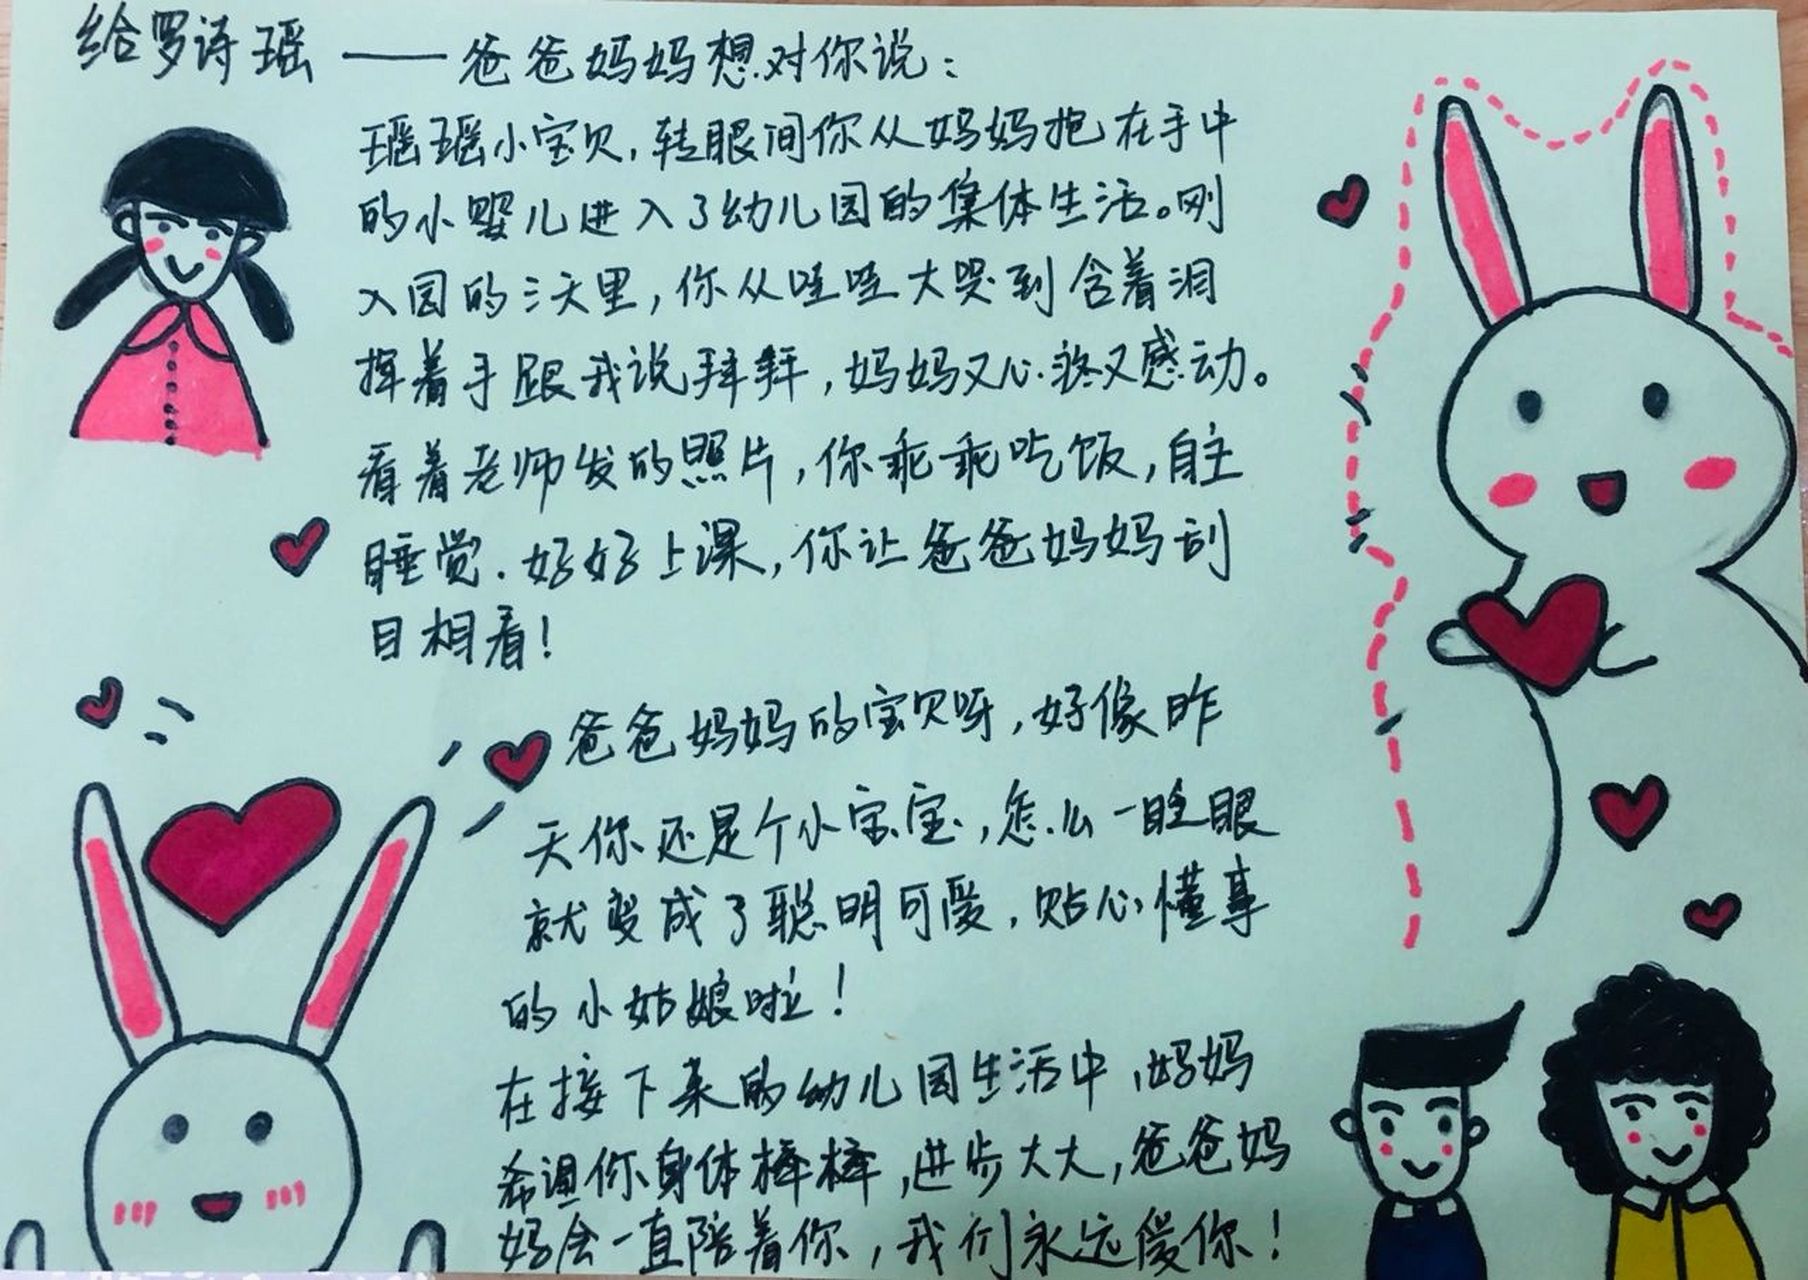 给罗诗瑶——爸爸妈妈想对你说：
瑶瑶小宝贝，转眼间你从妈妈抱在手中
的小婴儿进入了幼儿园的集体生活。刚
入园的三天里，你从哇哇大哭到含着泪
挥着手跟我说拜拜，妈妈又心疼又感动。
看着老师发的照片，你乖乖吃饭，自主
睡觉．好好上课，你让爸爸妈妈刮
目相看！
爸爸妈妈的宝贝呀，好像昨
天你还是个小宝宝，怎么一睡眼
就变成了聪明可爱，贴心懂事
的小姑娘啦！
在接下来的幼儿园生活中，妈妈
希望你身体棒棒，进步大大，爸爸妈
妈会一直陪着你，我们永远爱你！